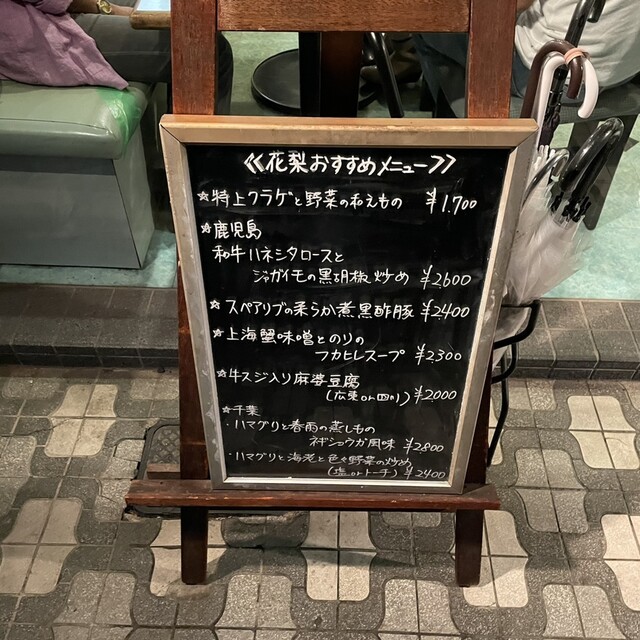 ≪花梨おすすめメニュー≫
☆特上クラゲと野菜の和えもの ¥1.700
☆鹿児島
和牛ハネシタロースと
ジャガイモの黒胡椒炒め ¥2600
☆スペアリブの柔らか煮黒酢豚 ¥2400
☆上海蟹味噌とのりの
フカヒレスープ ¥2300
☆牛スジ入り麻婆豆腐
(広東or四川) ¥2000
☆千葉
・ハマグリと春雨の蒸しもの
ネギショウガ風味 ¥2800
・ハマグリと海老と色々野菜の炒め
(塩orトーチ) ¥2400